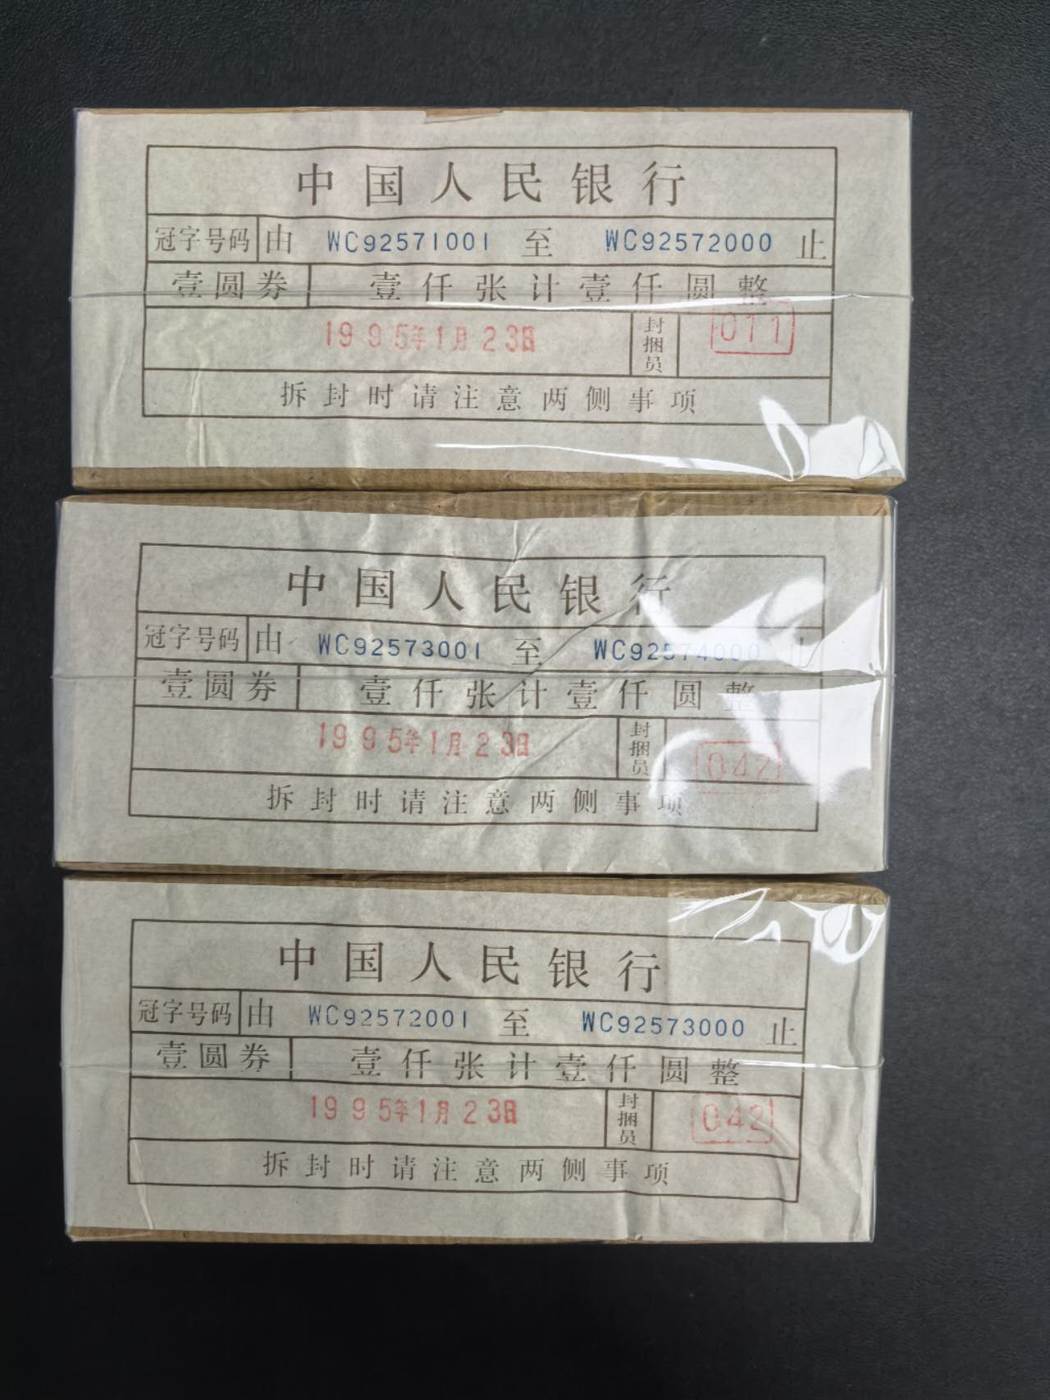 中国人民银行
冠字号码 由 WC92571001 至 WC92572000 止
壹圆券 壹仟张计壹仟圆整
1995年1月23日 封捆员 011
拆封时请注意两侧事项
中国人民银行
冠字号码 由 WC92573001 至 WC92574000 止
壹圆券 壹仟张计壹仟圆整
1995年1月23日 封捆员 042
拆封时请注意两侧事项
中国人民银行
冠字号码 由 WC92572001 至 WC92573000 止
壹圆券 壹仟张计壹仟圆整
1995年1月23日 封捆员 042
拆封时请注意两侧事项